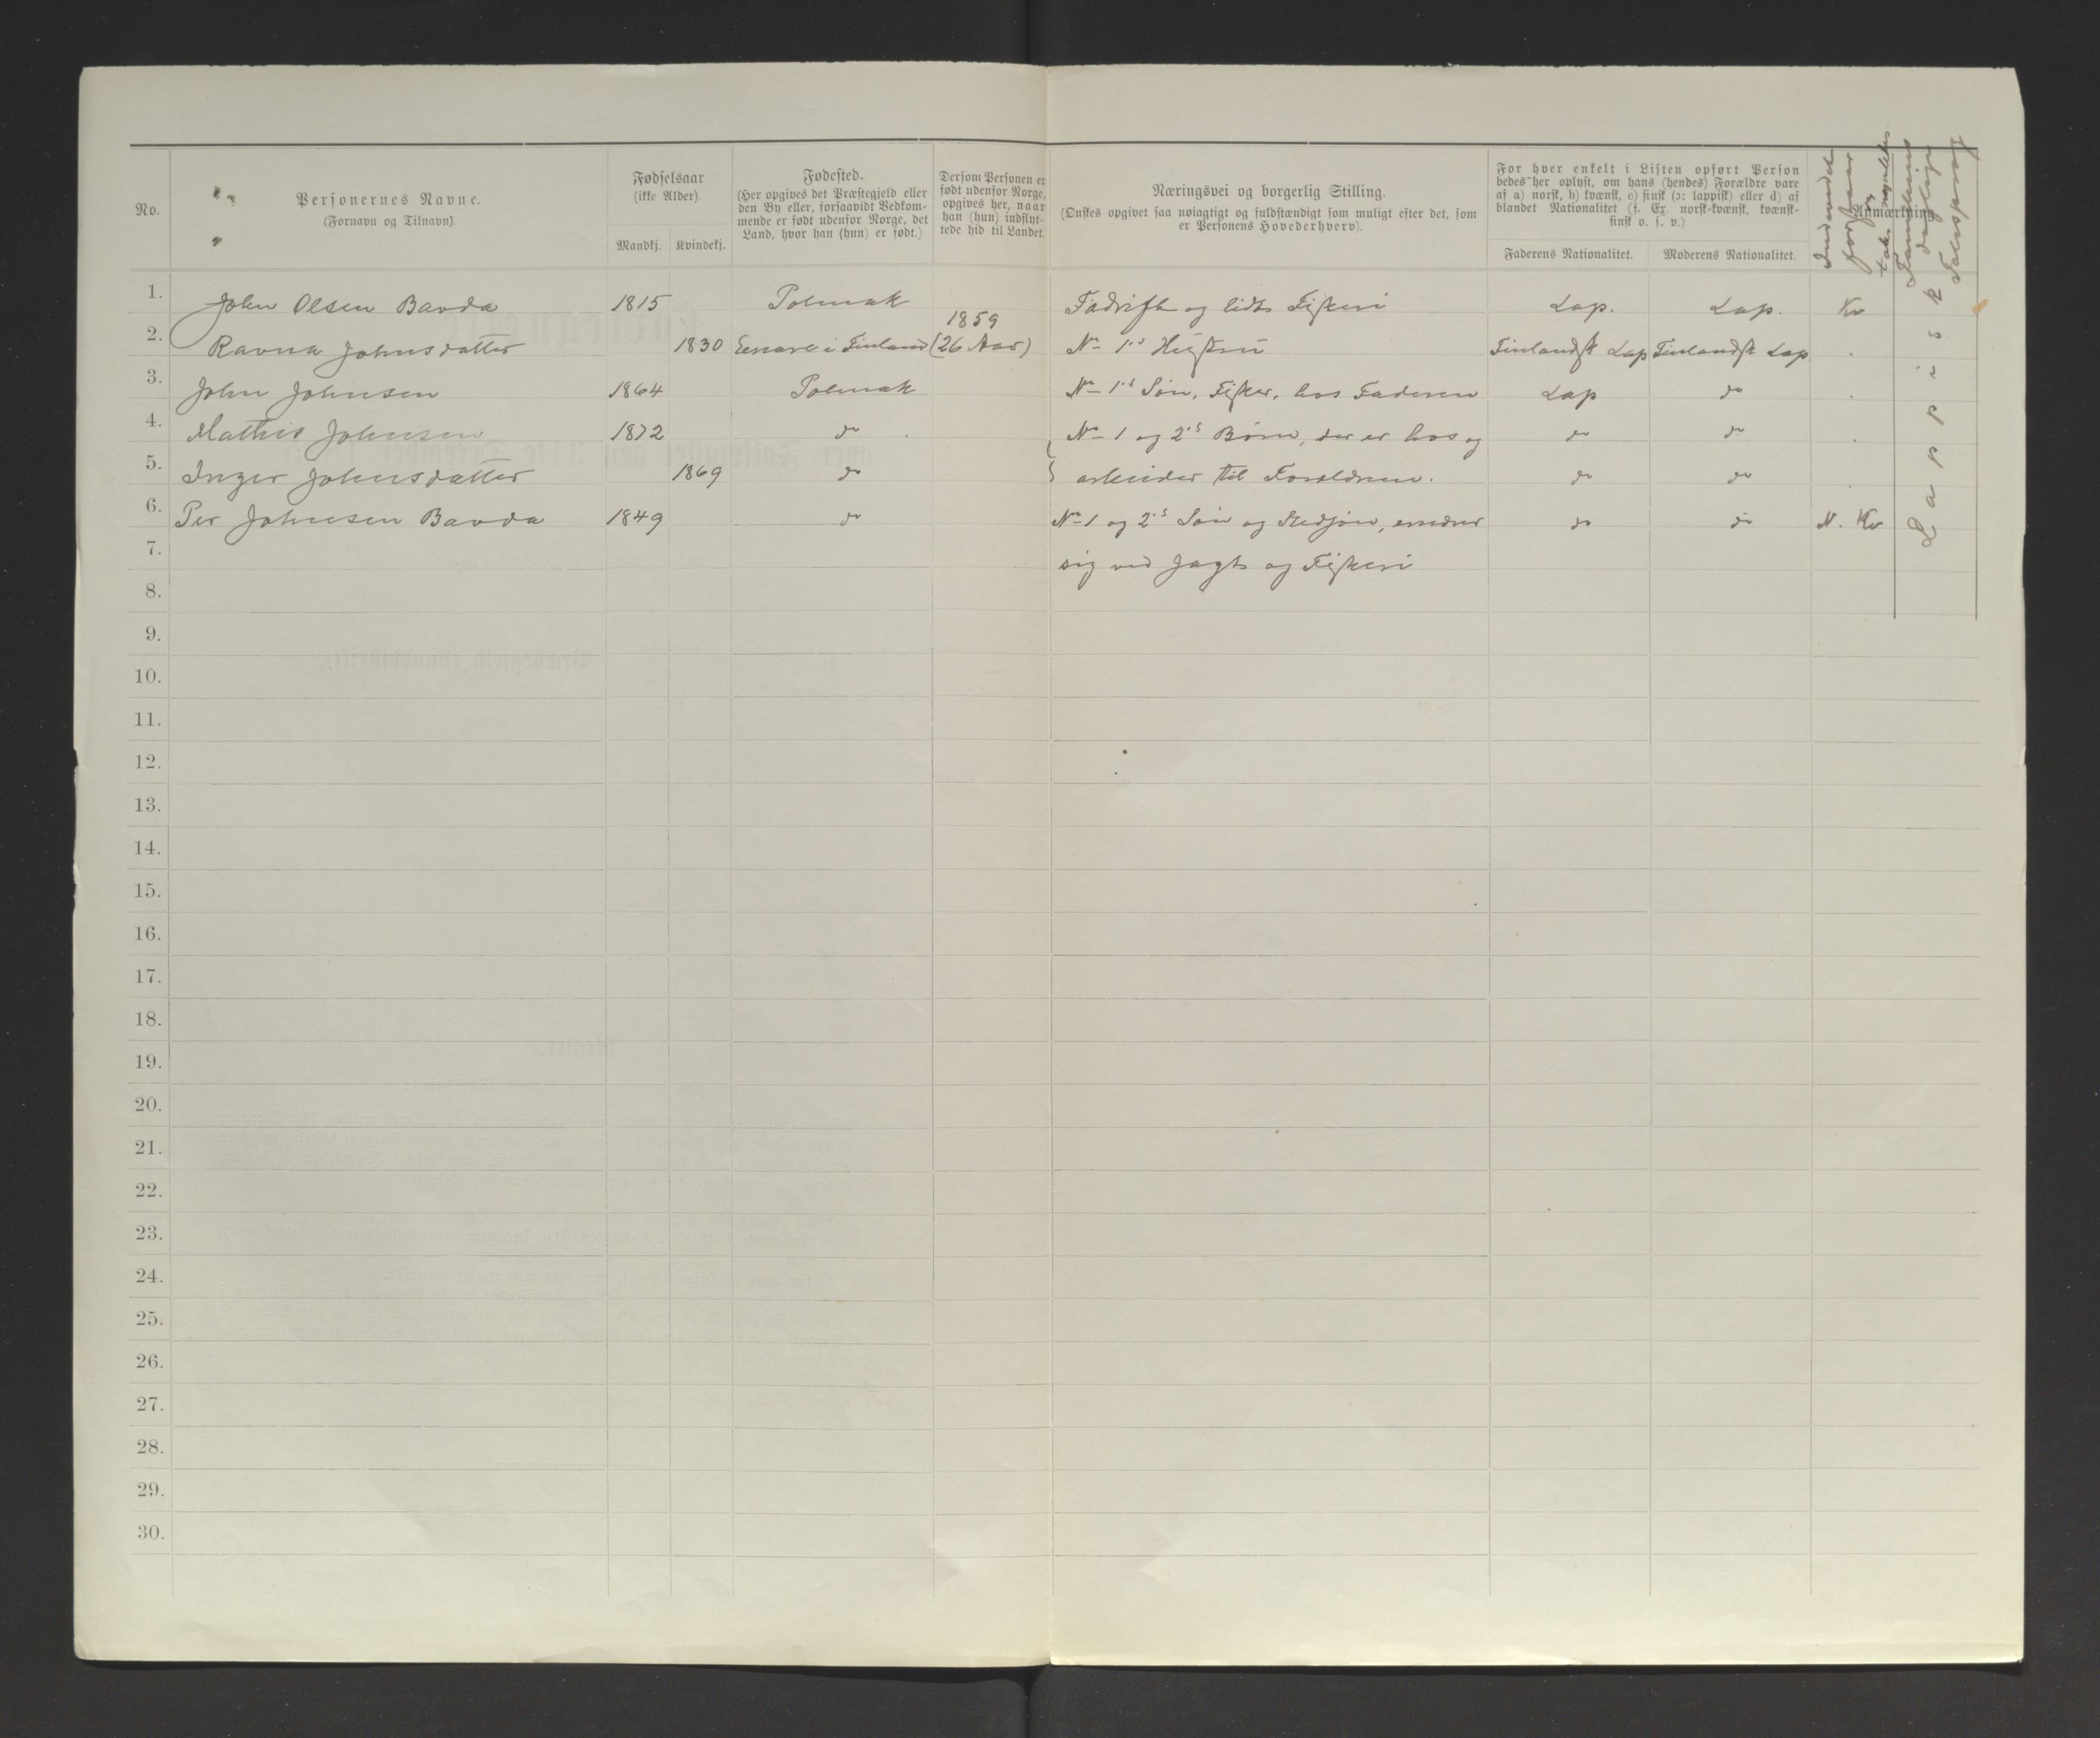 No.
Personernes Navne.
(Fornavn og Tilnavn).
Fødselsaar
(ikke Alder).
Mandkj. Kvindekj.
Fødested.
(Her opgives det Præstegjeld eller
den By eller, forsaavidt Vedkom-
mende er født udenfor Norge, det
Land, hvor han (hun) er født.)
Dersom Personen er
født udenfor Norge,
opgives her, naar
han (hun) indflyt-
tede hid til Landet.
Næringsvei og borgerlig Stilling.
(Ønskes opgivet saa nøiagtigt og fuldstændigt som muligt efter det, som
er Personens Hovederhverv).
For hver enkelt i Listen opført Person
bedes her oplyst, om hans (hendes) Forældre vare
af a) norsk, b) kvænsk, c) finsk (ɔ: lappisk) eller d) af
blandet Nationalitet (f. Ex. norsk-kvænsk, kvænsk-
finsk o. s. v.)
Faderens Nationalitet. Moderens Nationalitet.
Anmærkning
forstaar
og
Familiens
daglige
Talesprog
Lappisk
1. John Olsen Bavda 1815 Polmak Fædrift og lidt Fiskeri Lap. Lap. Kv
1859
2. Ravna Johnsdatter 1830 Enare i Finland (26 Aar) No 1's Hustru Finlandsk Lap Finlandsk Lap
3. John Johnsen 1864 Polmak No 1's Søn, Fisker, hos Faderen Lap do
4. Mathis Johnsen 1872 do No 1 og 2's Børn, der er hos og do do
5. Inger Johnsdatter 1869 do arbeider til Forældrene. do do
6. Per Johnsen Bavda 1849 do No 1 og 2's Søn og Stedsøn, ernærer do do N. Kv
7. sig ved Jagt og Fiskeri
8.
9.
10.
11.
12.
13.
14.
15.
16.
17.
18.
19.
20.
21.
22.
23.
24.
25.
26.
27.
28.
29.
30.